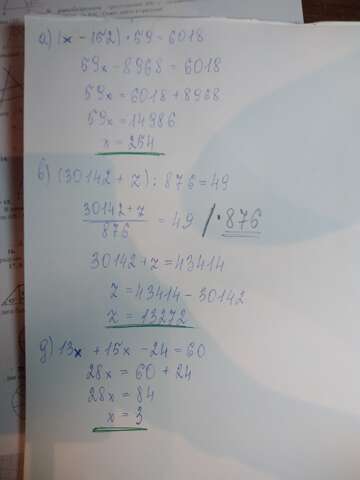 а) (x - 152) • 59 = 6018
59x - 8968 = 6018
59x = 6018 + 8968
59x = 14986
x = 254
в) (30142 + z) : 876 = 49
30142 + z
876
= 49 / • 876
30142 + z = 43414
z = 43414 - 30142
z = 13272
д) 13x + 15x - 24 = 60
28x = 60 + 24
28x = 84
x = 3